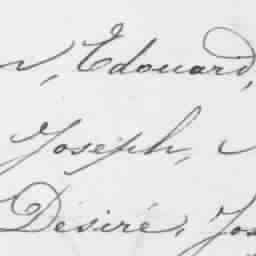 Edouard,
Joseph,
Désiré, Jos